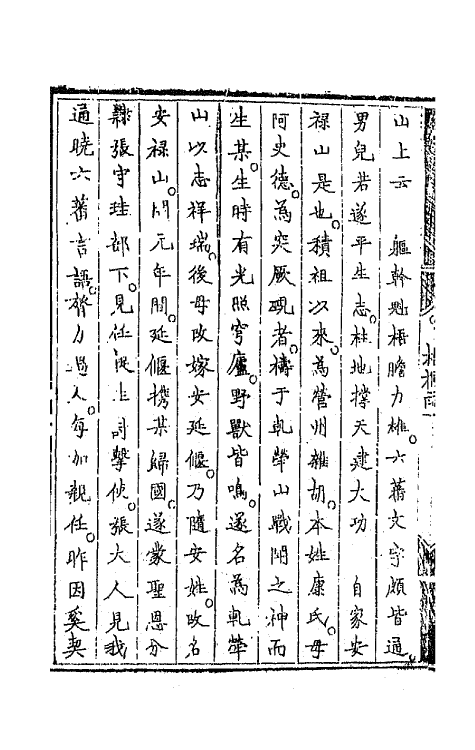 山上云 軀幹魁梧膽力雄。六蕃文字頗皆通
男兒若遂平生志。柱地撑天建大功 自家安
祿山是也。積祖以來。為營州雜胡。本姓康氏。母
阿史德。為突厥覡者。禱于軋犖山戰鬭之神而
生某。生時有光照穹廬。野獸皆鳴。遂名為軋犖
山以志祥瑞。後母改嫁安延偃。乃隨安姓。改名
安祿山。開元年間。延偃携某歸國。遂蒙聖恩分
隸張守珪部下。見任捉生討擊偵。張大人見我
通曉六蕃言語。膂力過人。每加親任。昨因奚契